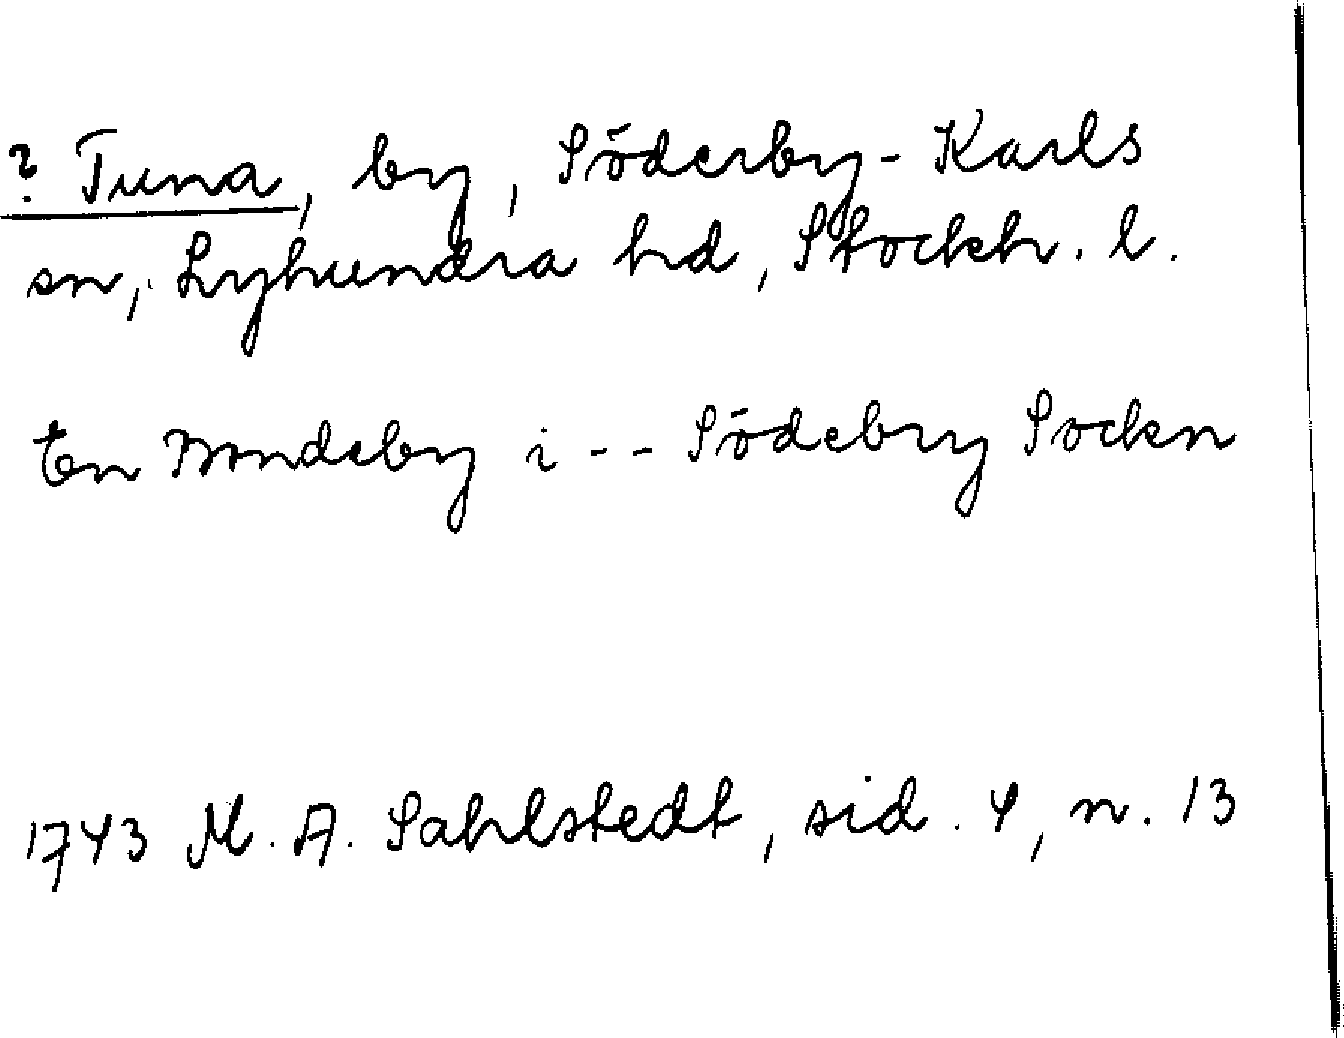 ? Tuna, by, Söderby-Karls
sn, Lyhundra hd, Stockh. l.
En Bondeby i -- Södebry Sockn
1743 M. A. Sahlstedt, sid. 4, n. 13